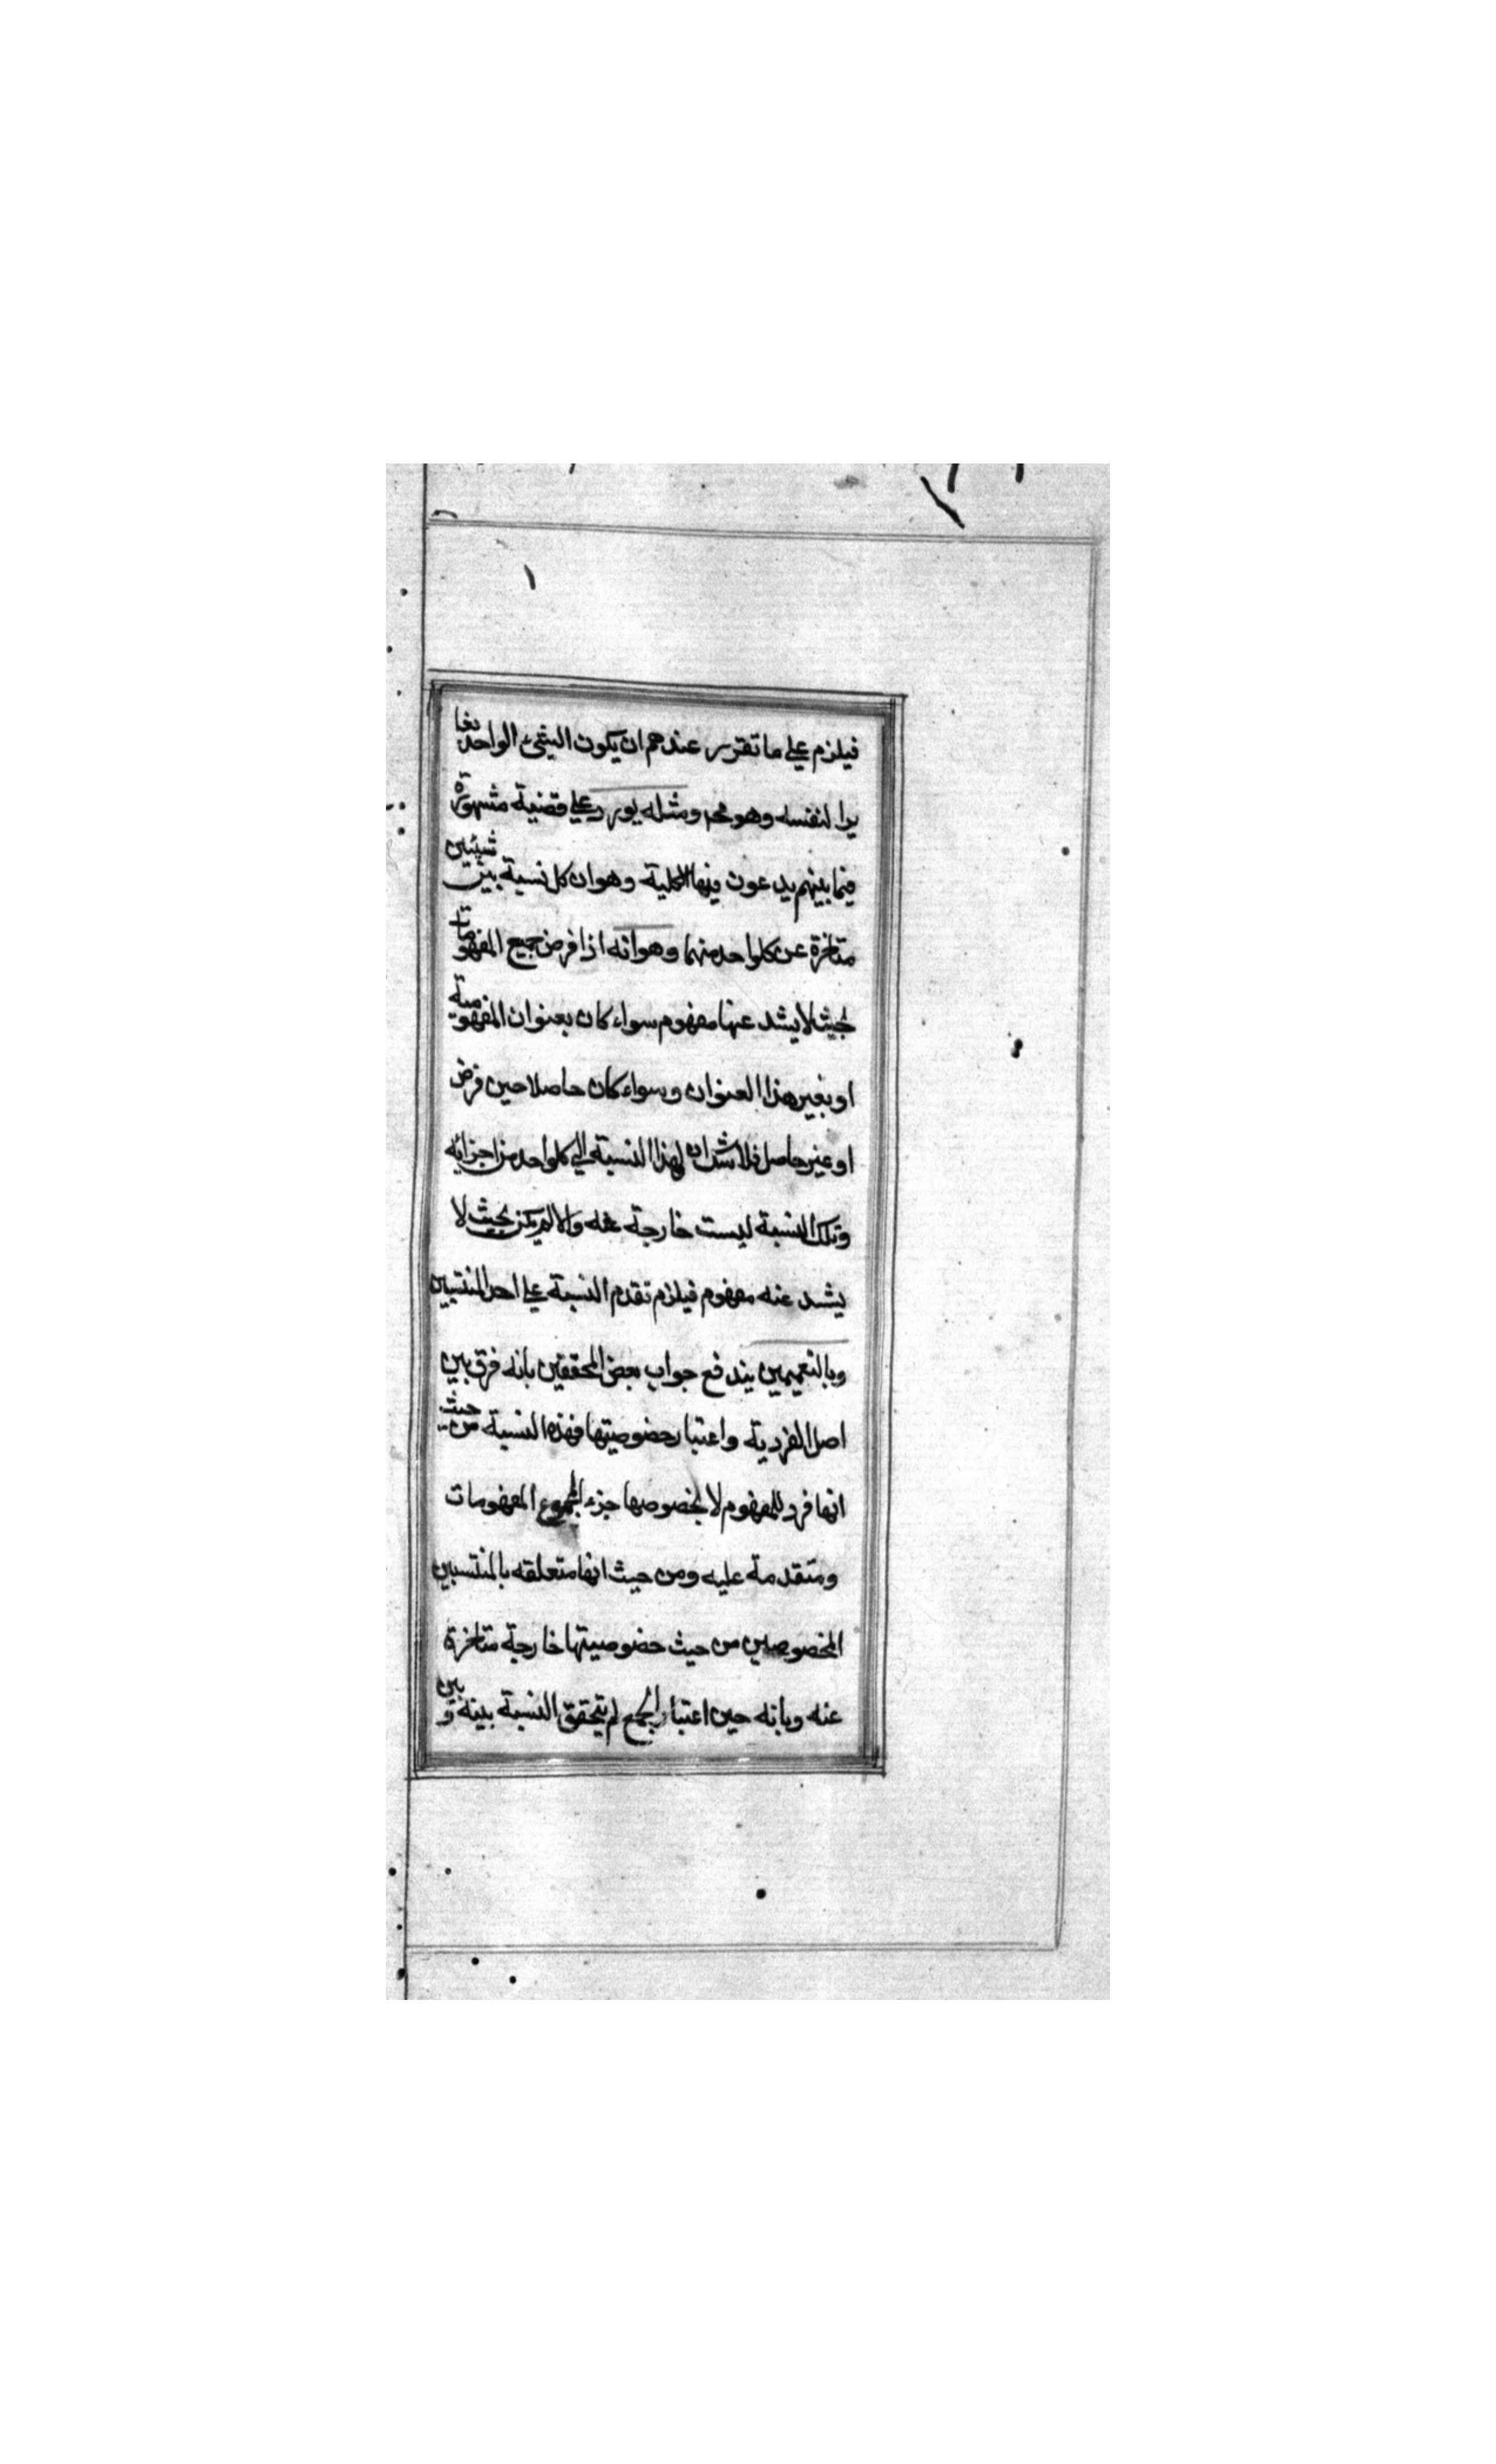 فيلزم على ما تقرر عندهم ان يكون الشئ الواحد بغا
يرا لنفسه وهو مح ومثله يورد على قضية مشهورة
فيما بينهم يدعون فيها الكلية وهو ان كل نسبة بين شيئين
متاخرة عن كلواحد منهما وهو انه اذا فرض جميع المفهومات
بحيث لا يشد عنها مفهوم سواء كان بعنوان المفهومية
او بغير هذا العنوان وسواء كان حاصلا حين فرض
او غير حاصل فلا شك ان لهذا النسبة الى كلواحد من اجزائه
وتلك النسبة ليست خارجة عنه والا لم يكن بحيث لا
يشد عنه مفهوم فيلزم تقدم النسبة على احد المنتسبين
وبالتعميمين يندفع جواب بعض المحققين بانه فرق بين
اصل الفردية واعتبار خصوصيتها فهذه النسبة من حيث
انها فرد للمفهوم لا بخصوصها جزء لمجموع المفهومات
ومتقدمة عليه ومن حيث انها متعلقه بالمنتسبين
المخصوصين من حيث خصوصيتها خارجة متاخرة
عنه وبانه حين اعتبار الجمع لم يتحقق النسبة بينه و بين